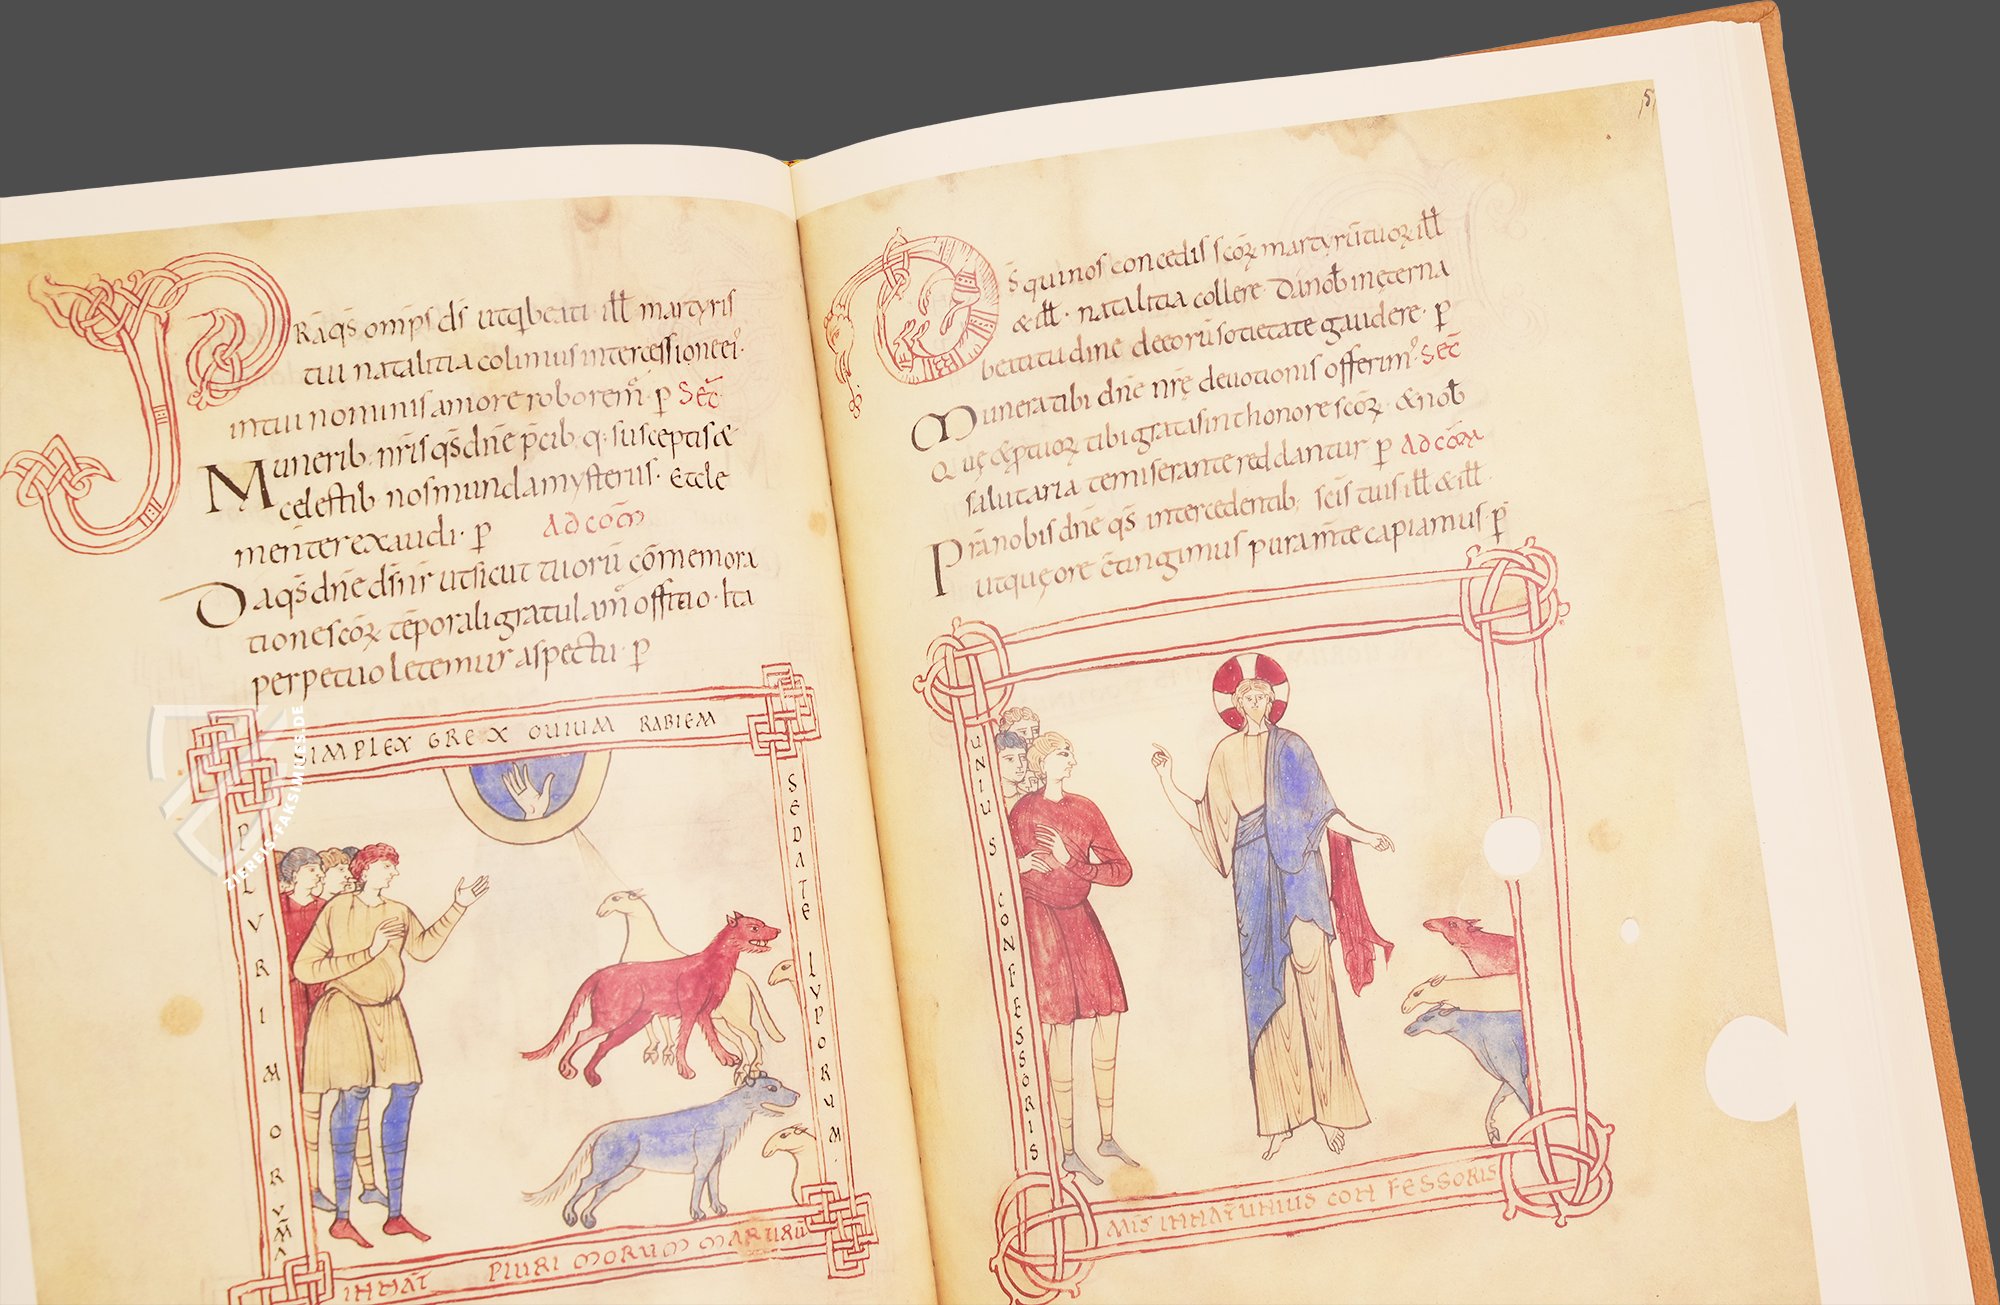 Rāqs̄ omp̄s d̄s utqui beati ill̄ martyris
tui natalitia colimus intercessione ei'
in tui nominis amore roborem̄ p̄ Sēc
Munerib; nr̄is qs̄ dn̄e p̄cib; q; susceptis &
celestib; nos munda mysteriis. Et cle
menter exaudi. p̄ ad cōm
Da qs̄ dn̄e ds̄ nr̄ ut sicut tuorū cōmemora
tione scōꝝ tēporali gratulam̄ offitio. Ita
perpetuo letemur aspectu. p̄
SIMPLEX GREX OUIUM RABIEM
SEDATE LVPORUM
PLVRIMORUM M̄A
IN NAT̄ PlURIMORUM MARTIRŪ
ZIEREIS FAKSIMILES.DE
5
Ds̄ qui nos concedis scōꝝ martyrū tuoꝝ ill̄
& ill̄. natalitia collere. Da nob̄ in ęterna
beatitudine de eorū sotietate gaudere. p̄
Munera tibi dn̄e nr̄ę deuotionis offerim' Sēc
Quę & p̄ tuoꝝ tibi grata sint honore scōꝝ. & nob̄
salutaria te miserante reddantur. p̄ ad cōm
Prā nobis dn̄e qs̄ intercedentib; scīs tuis ill̄ & ill̄.
ut quę ore cōtingimus pura mēte capiamus. p̄
UNIUS CONFESSORIS
MIS IN NAT̄ UNIUS CONFESSORIS